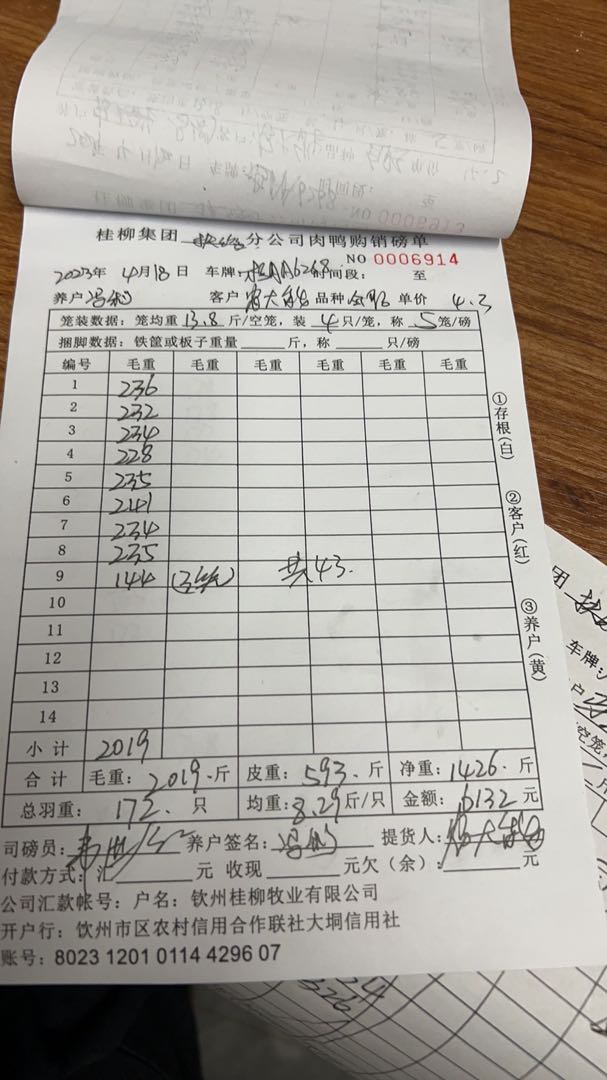 NO 0006913
桂柳集团 分公司肉鸭购销磅单
NO 0006914
2023年 4月18日 车牌: 时间段: 至
养户 客户 品种 单价 4.3
笼装数据: 笼均重 13.8 斤/空笼, 装 4 只/笼, 称 5 笼/磅
捆脚数据: 铁筐或板子重量 斤, 称 只/磅
编号 毛重 毛重 毛重 毛重 毛重 毛重
1 236
2 232
3 234
4 228
5 235
6 241
7 234
8 235
9 144 (3笼) 共43.
10
11
12
13
14
小计 2019
合计 毛重: 2019.斤 皮重: 593.斤 净重: 1426.斤
总羽重: 172.只 均重: 8.29斤/只 金额: 6132元
司磅员: 养户签名: 提货人:
付款方式: 汇 元 收现 元欠(余): 元
公司汇款帐号: 户名: 钦州桂柳牧业有限公司
开户行: 钦州市区农村信用合作联社大垌信用社
账号: 8023 1201 0114 4296 07
①存根(白)
②客户(红)
③养户(黄)
团
车牌:
户
空笼,
326